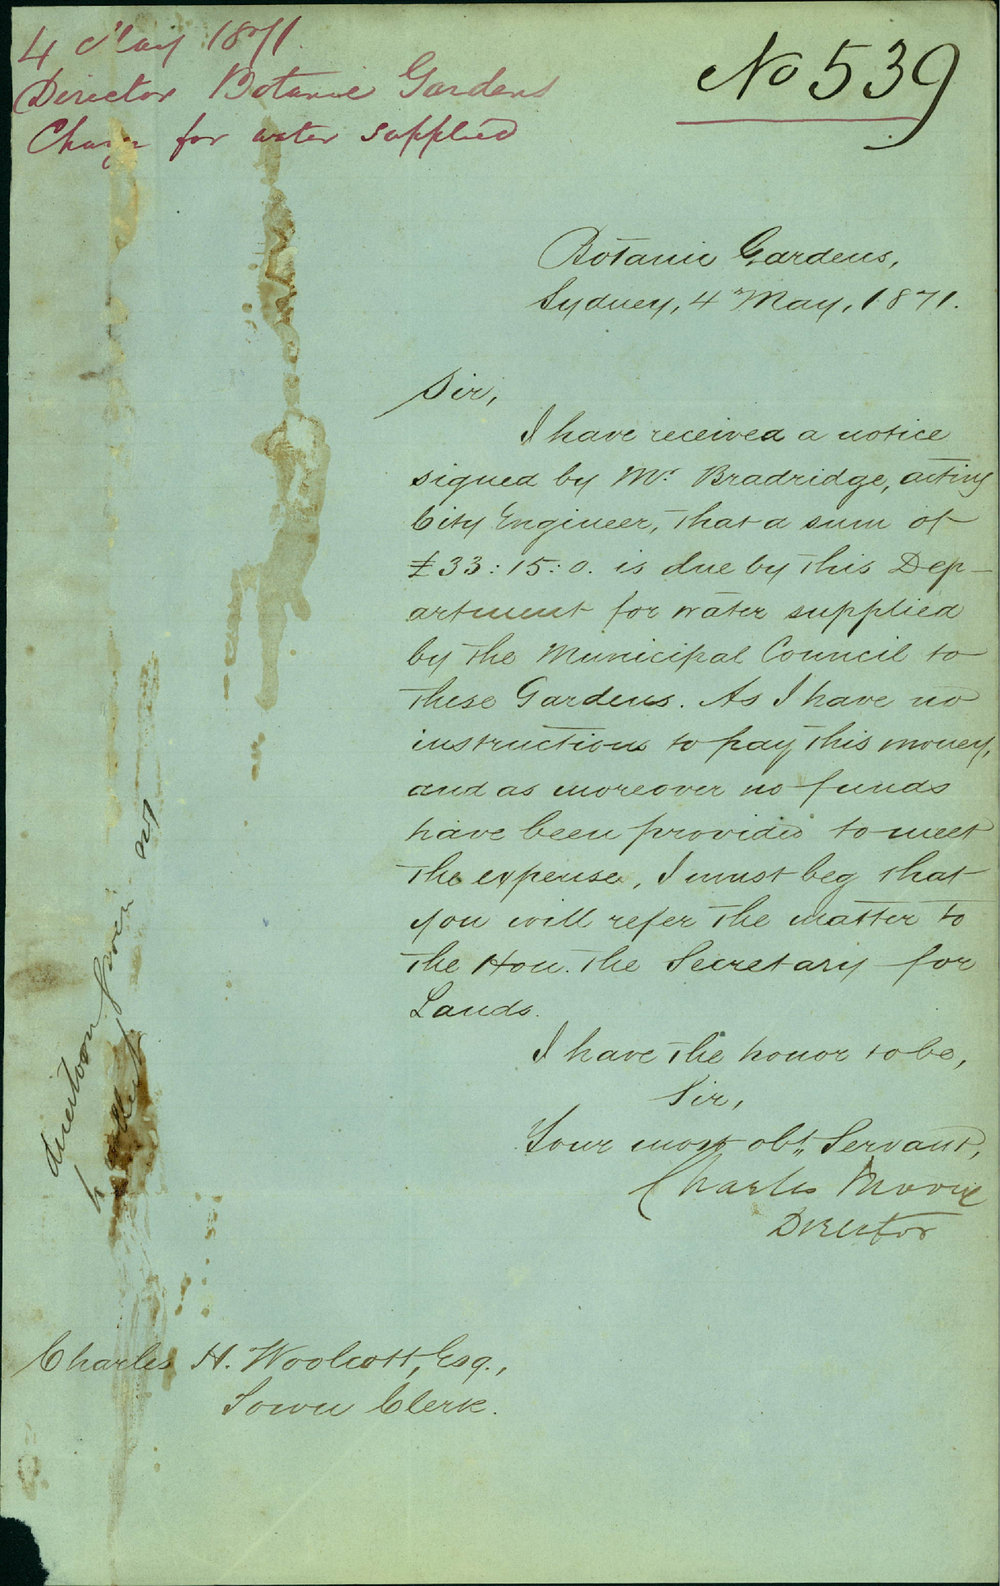 4 May 1871.
Director Botanic Gardens
Charge for water supplied
No 539
Botanic Gardens,
Sydney, 4 May, 1871.
Sir,
I have received a notice
signed by Mr. Bradridge, acting
City Engineer, that a sum of
£33:15:0. is due by this Dep-
artment for water supplied
by the Municipal Council to
these Gardens. As I have no
instructions to pay this money,
and as moreover no funds
have been provided to meet
the expense, I must beg that
you will refer the matter to
the Hon. the Secretary for
Lands.
I have the honor to be,
Sir,
Your most obt. Servant,
Charles Moore
Director
Charles H. Woolcott, Esq.,
Town Clerk.
direction given